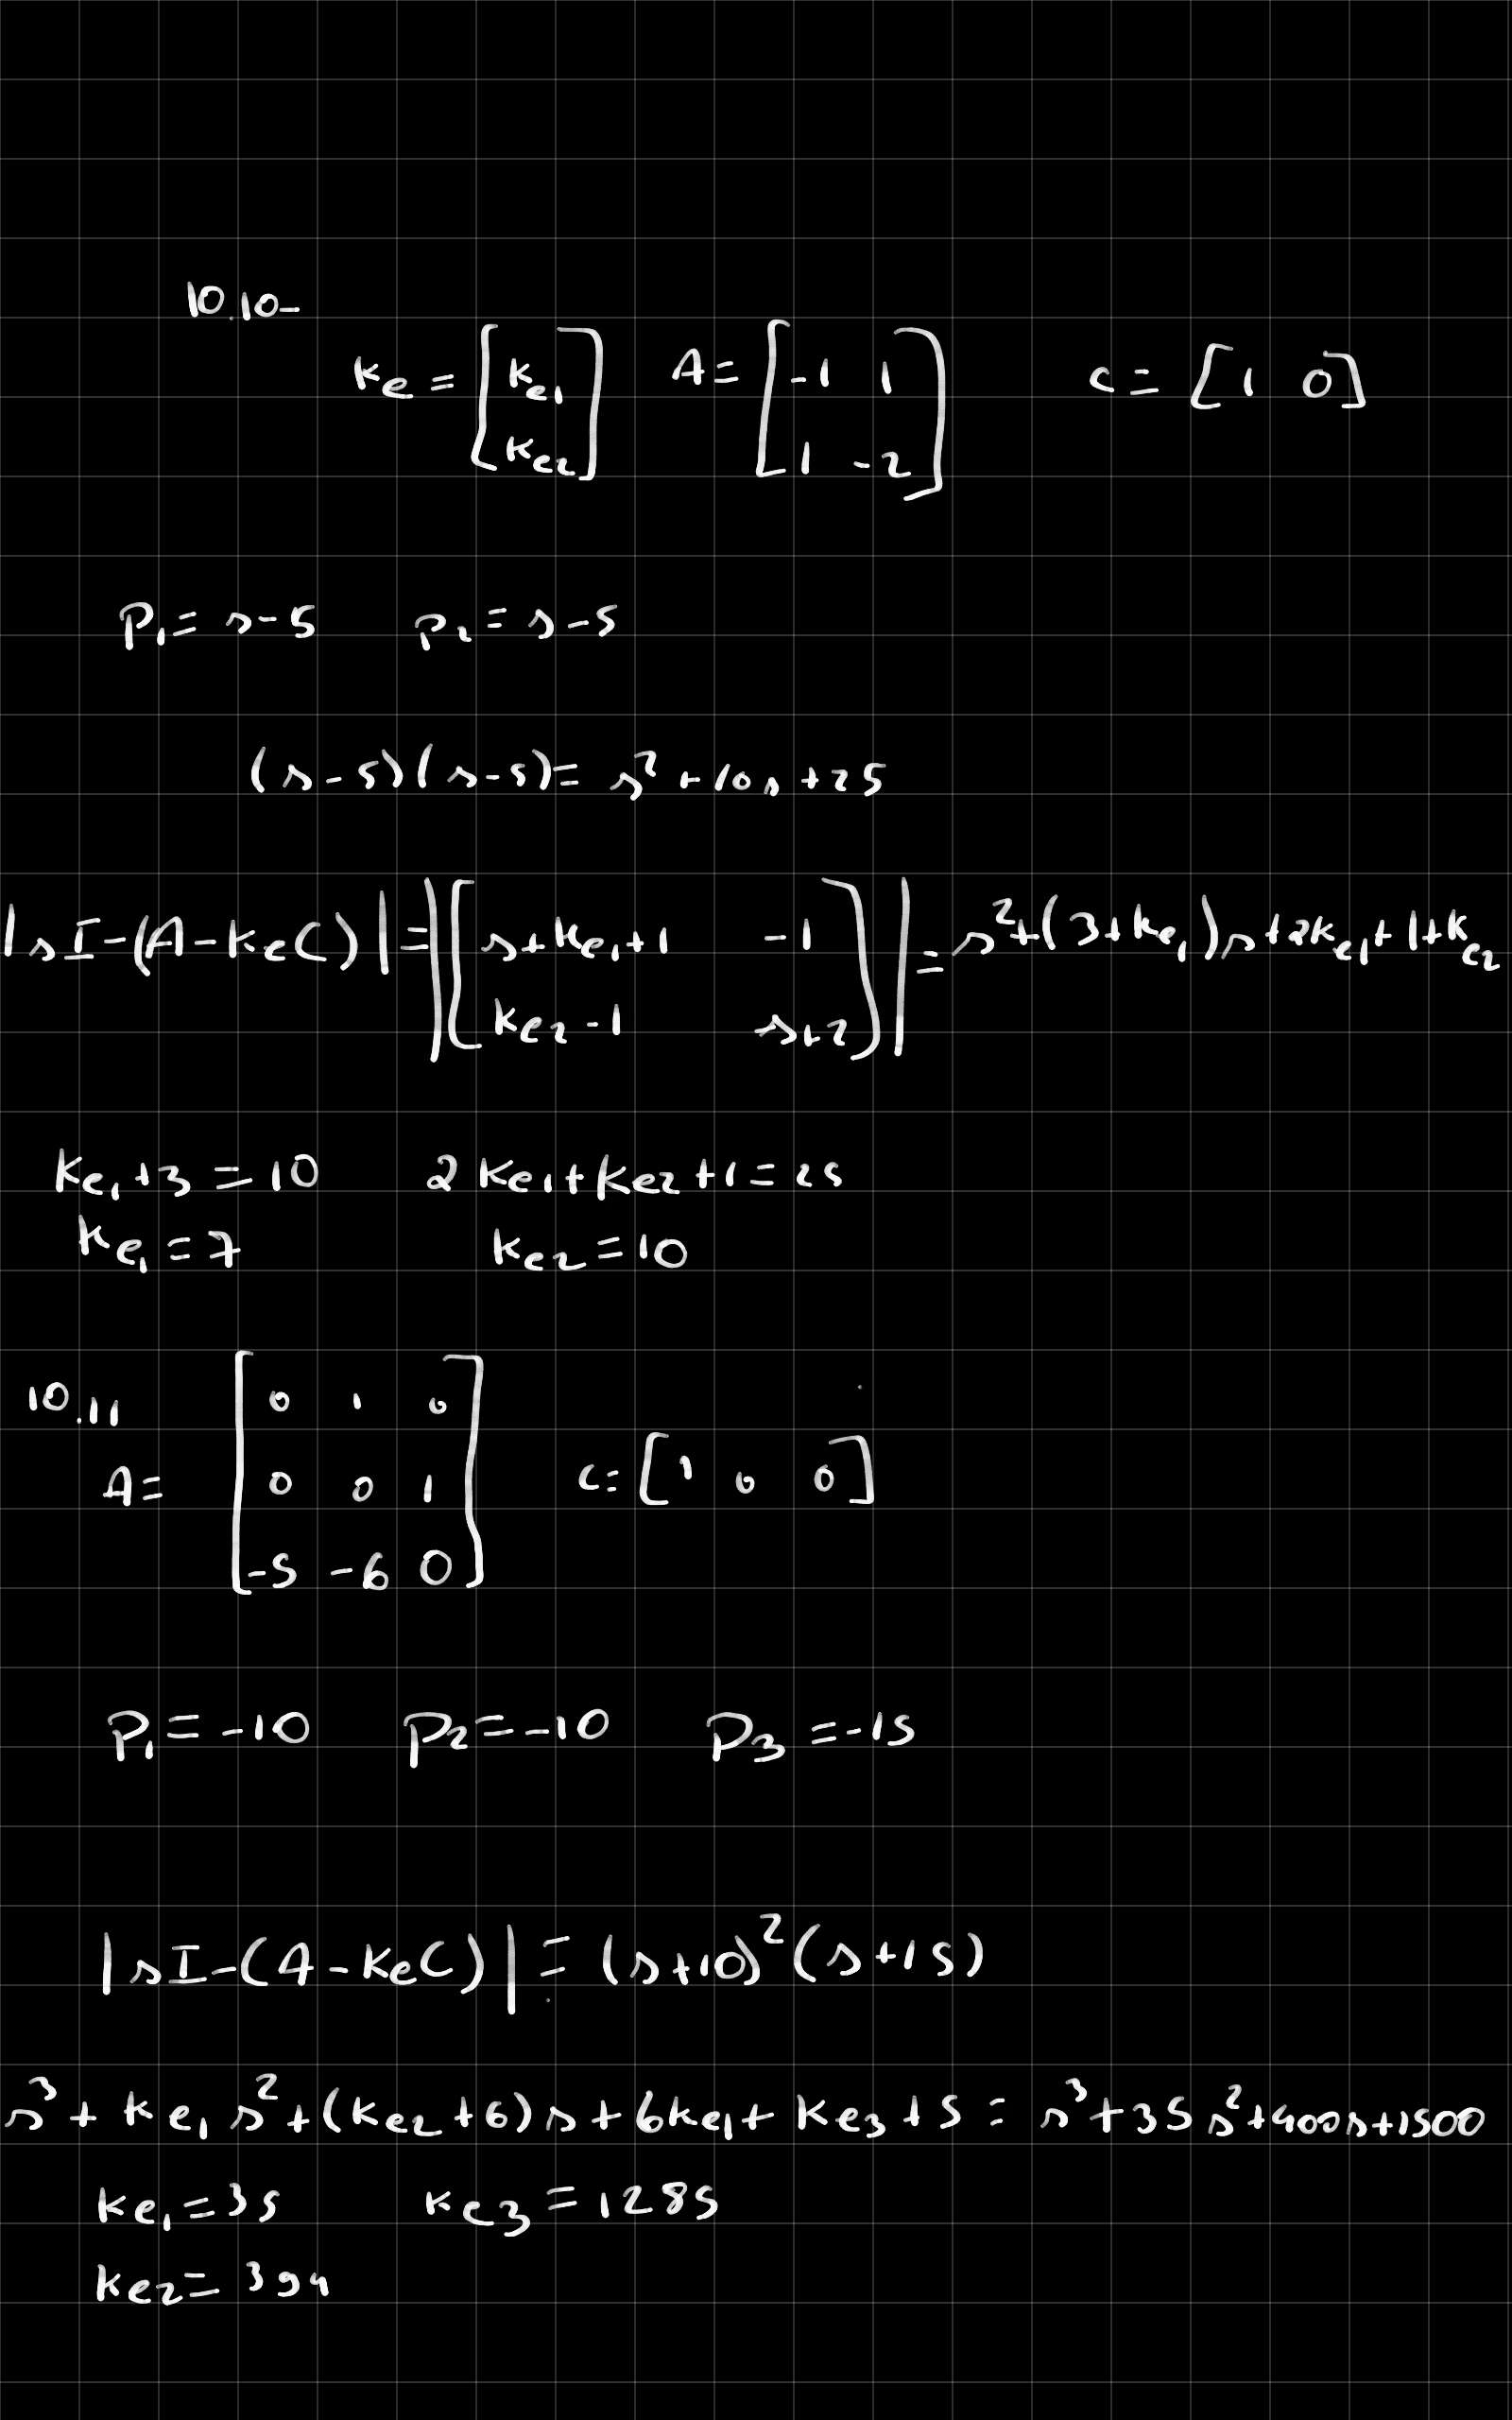 10.10-
ke = [ke1 ke2] A= [-1 1 1 -2] c= [1 0]
P1= s-5 p2= s-5
(s-5)(s-5)= s²+10s+25
|sI-(A-keC)|=|[s+ke1+1 -1 ke2-1 s+2]|=s²+(3+ke1)s+2ke1+1+ke2
ke1+3=10 2ke1+ke2+1=25
ke1=7 ke2=10
10.11
A= [0 1 0 0 0 1 -5 -6 0] C=[1 0 0]
P1=-10 P2=-10 P3=-15
|sI-(A-keC)|=(s+10)²(s+15)
s³+ke1s²+(ke2+6)s+6ke1+ke3+5=s³+35s²+400s+1500
ke1=35 ke3=1285
ke2=394